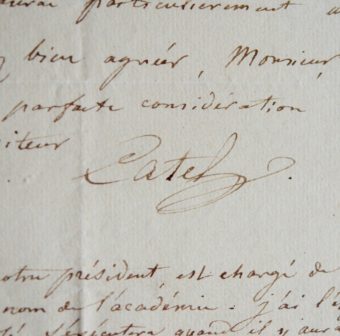 particulièrement
bien agréer, Monsieur
parfaite considération
Catel
président est chargé de
nom de l'académie. j'ai l'
quand il n'aura